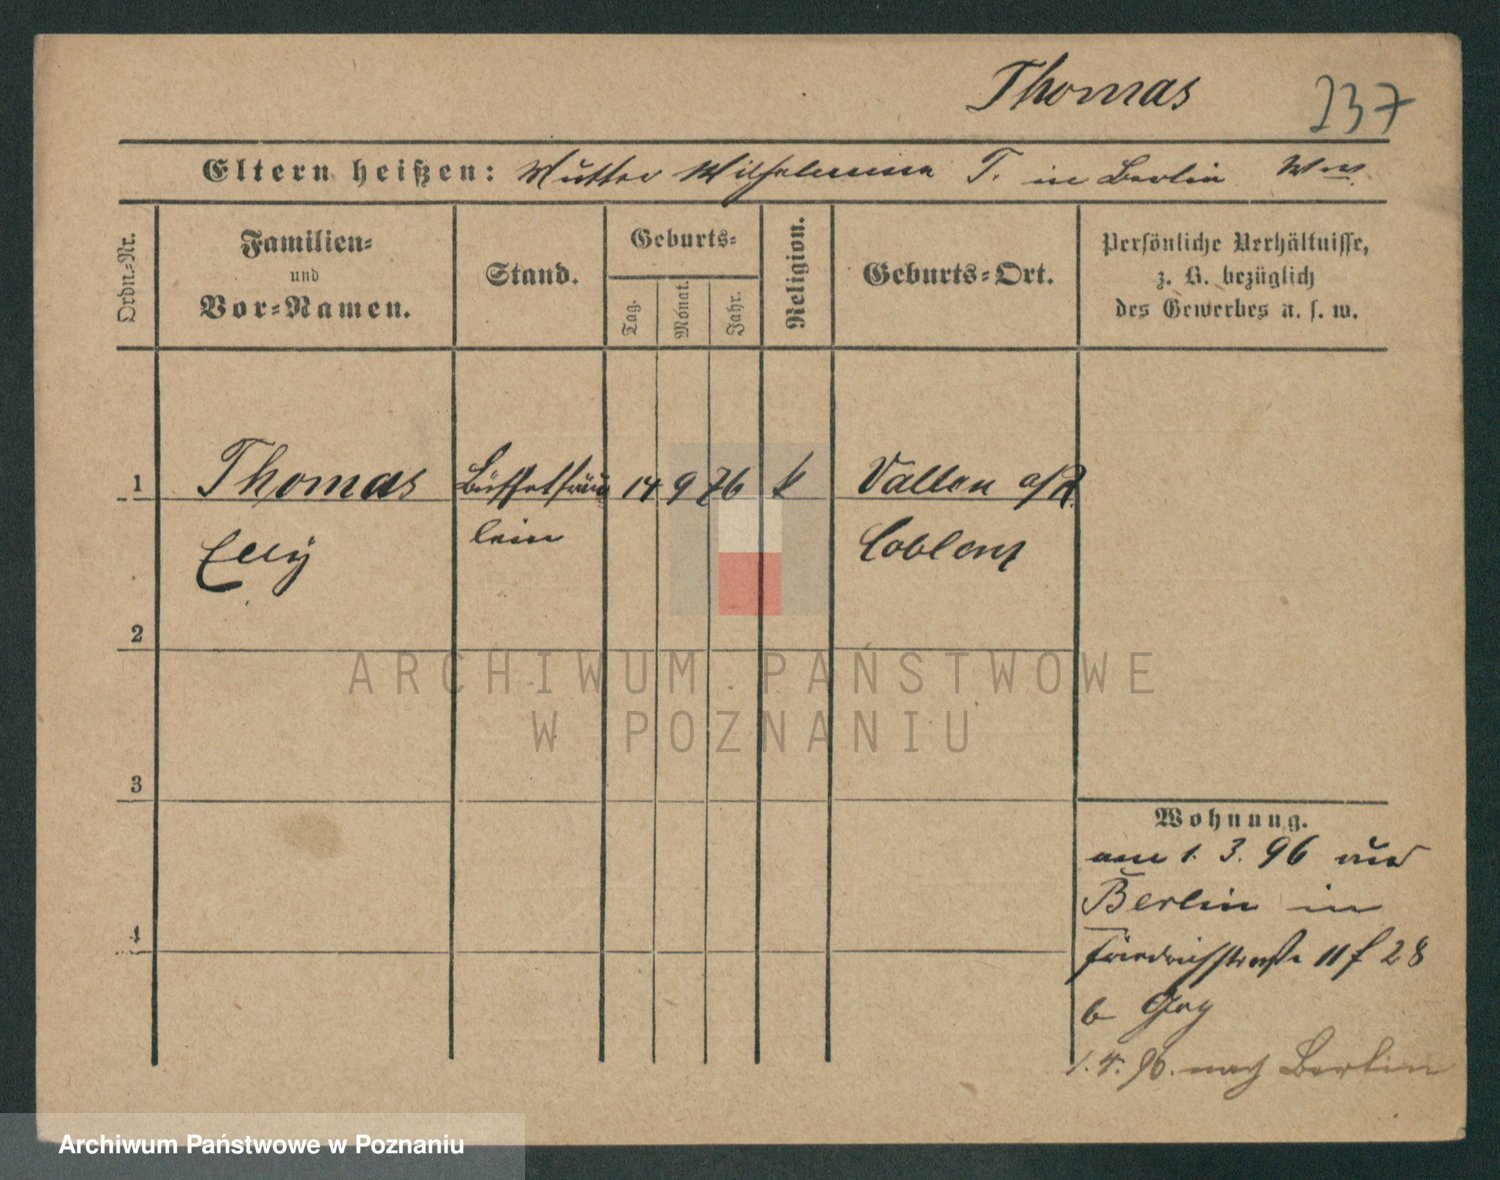 Thomas 237
Eltern heißen: Mutter Wilhelmine T. in Berlin Wwe.
Ordn.-Nr.
Familien-
und
Vor-Namen.
Stand.
Geburts-
Tag.
Monat.
Jahr.
Religion.
Geburts-Ort.
Persönliche Verhältnisse,
z. B. bezüglich
des Gewerbes u. s. w.
1 Thomas Büffetfräu 14 9 76 k Vallen a/R.
Elly lein Coblenz
2
3
4
Wohnung.
am 1. 3. 96 aus
Berlin in
Friedrichstraße 28
b
1. 4. 96. nach Berlin
ARCHIWUM PAŃSTWOWE
W POZNANIU
Archiwum Państwowe w Poznaniu